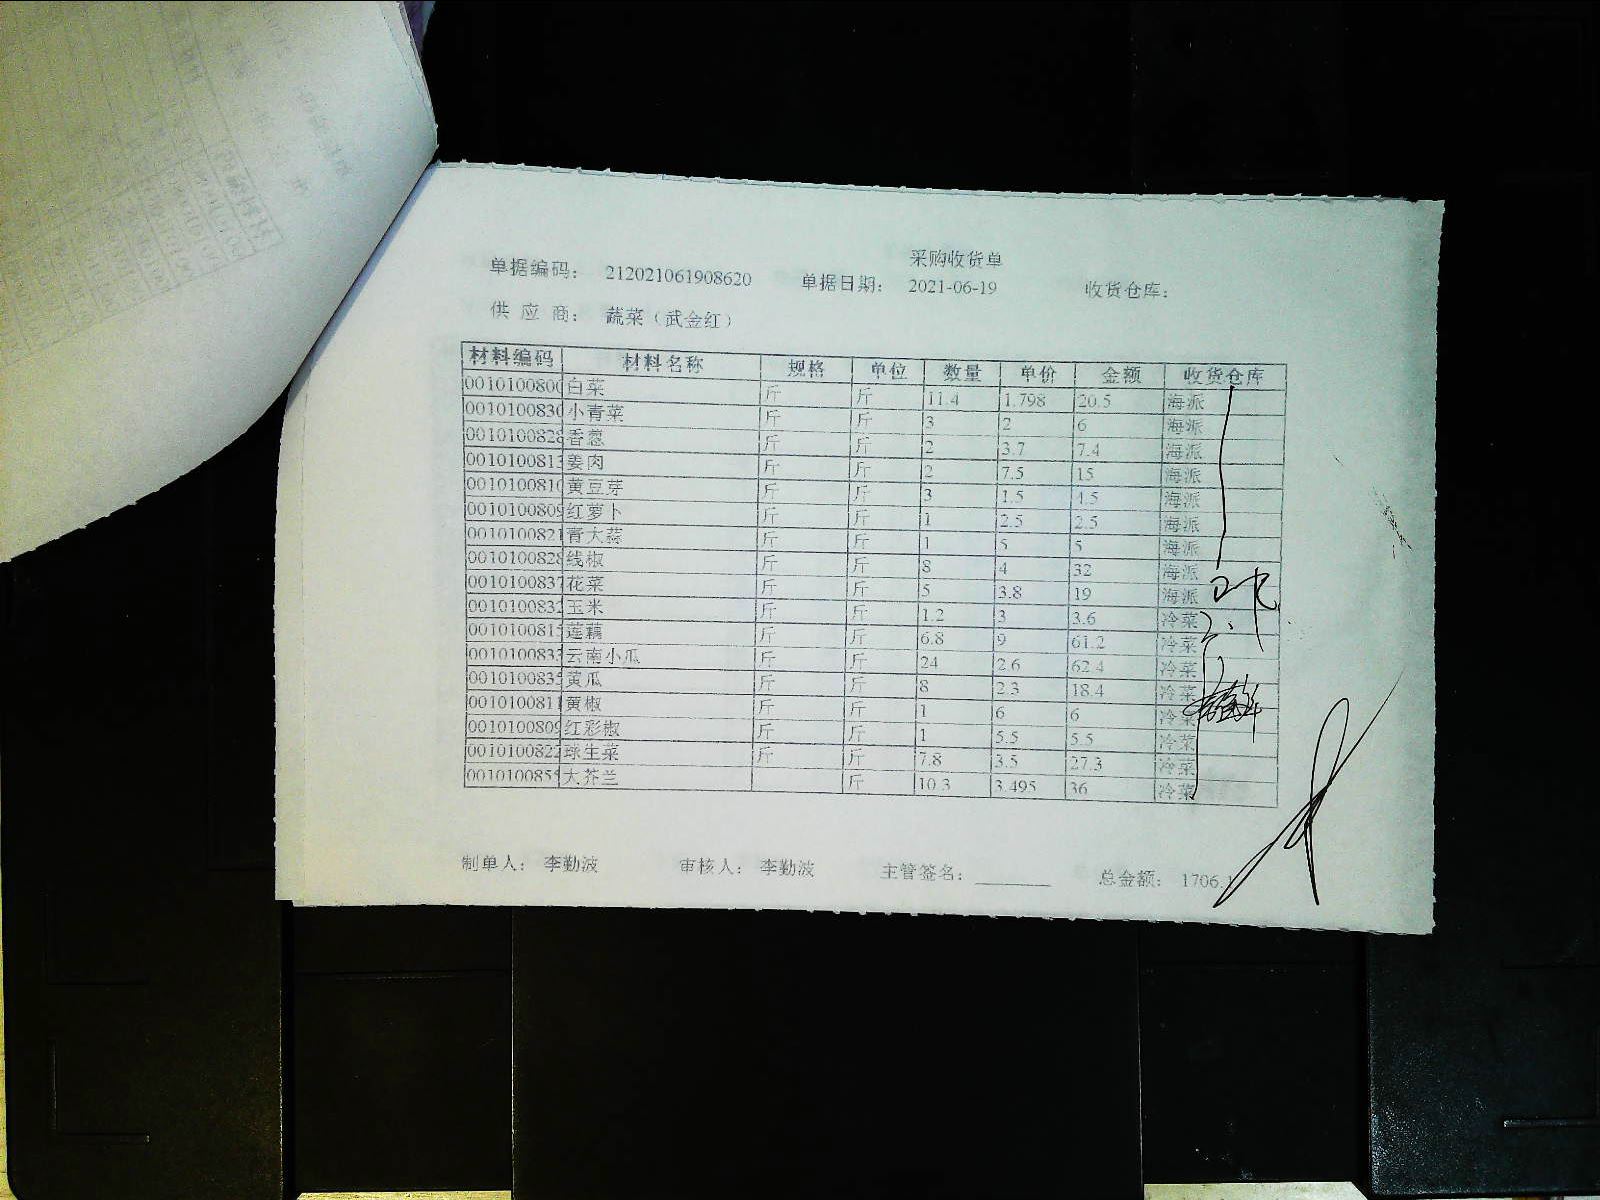 采购收货单
单据编码： 212021061908620 单据日期： 2021-06-19 收货仓库：
供 应 商： 蔬菜（武金红）
材料编码 材料名称 规格 单位 数量 单价 金额 收货仓库
0010100800 白菜 斤 斤 11.4 1.798 20.5 海派
0010100830 小青菜 斤 斤 3 2 6 海派
001010082 香葱 斤 斤 2 3.7 7.4 海派
001010081 姜肉 斤 斤 2 7.5 15 海派
0010100810 黄豆芽 斤 斤 3 1.5 4.5 海派
001010080 红萝卜 斤 斤 1 2.5 2.5 海派
001010082 青大蒜 斤 斤 1 5 5 海派
001010082 线椒 斤 斤 8 4 32 海派
001010083 花菜 斤 斤 5 3.8 19 海派
001010083 玉米 斤 斤 1.2 3 3.6 冷菜
001010081 莲藕 斤 斤 6.8 9 61.2 冷菜
001010083 云南小瓜 斤 斤 24 2.6 62.4 冷菜
001010083 黄瓜 斤 斤 8 2.3 18.4 冷菜
001010081 黄椒 斤 斤 1 6 6 冷菜
001010080 红彩椒 斤 斤 1 5.5 5.5 冷菜
001010082 球生菜 斤 斤 7.8 3.5 27.3 冷菜
001010085 大芥兰 斤 10.3 3.495 36 冷菜
制单人： 李勤波 审核人： 李勤波 主管签名： 总金额： 1706.1